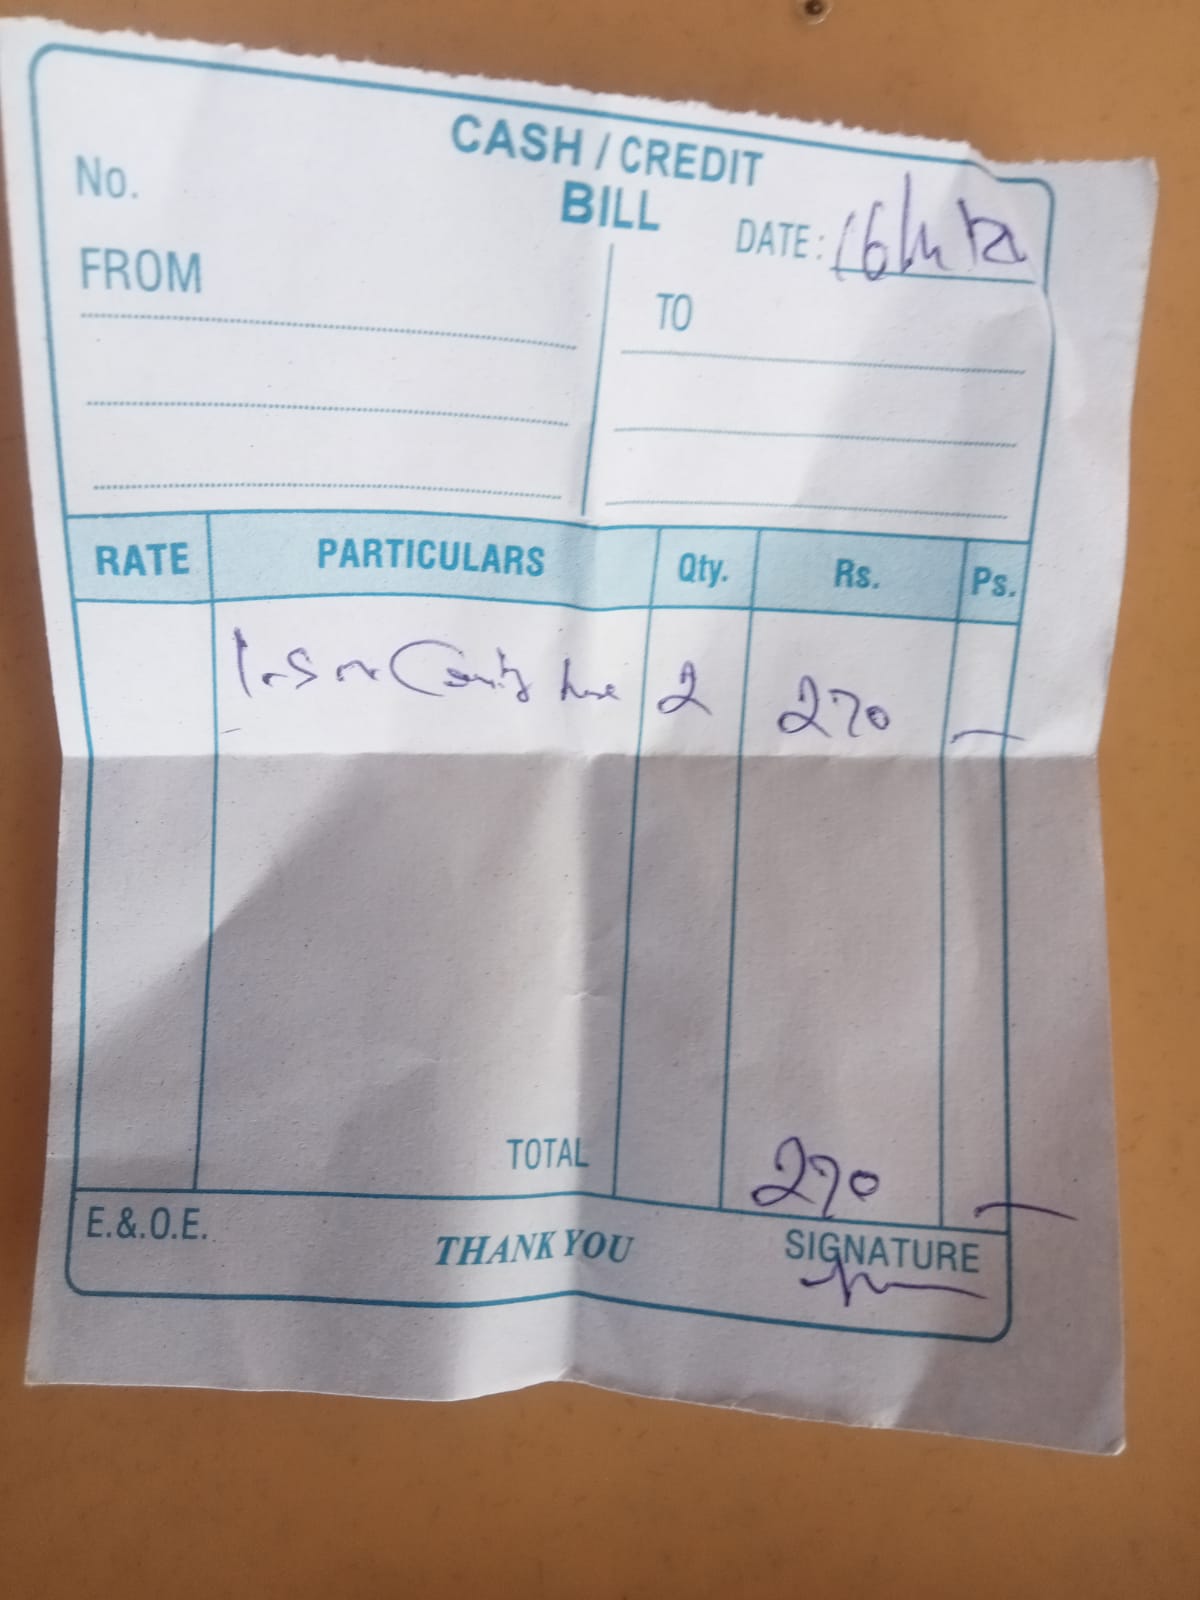 CASH / CREDIT
BILL
No.
DATE:
FROM
TO
RATE PARTICULARS Qty. Rs. Ps.
2 270 —
TOTAL 270 —
E.&.O.E. THANK YOU SIGNATURE